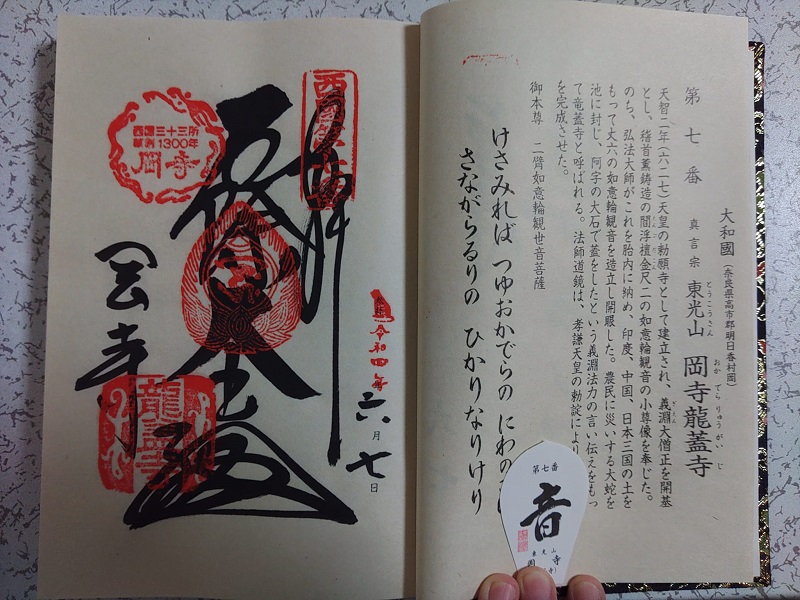 大和國(奈良県高市郡明日香村岡)
第七番 真言宗 東光山 岡寺龍蓋寺
とうこうさん
おかでらりゅうがいじ
天智二年(六二七)天皇の勅願寺として建立され、義淵大僧正を開基
ぎえん
とし、稽首薫鋳造の閻浮檀金尺二の如意輪観音の小尊像を奉じた。
のち、弘法大師がこれを胎内に納め、印度、中国、日本三国の土を
もって大六の如意輪観音を造立し開眼した。農民に災いする大蛇を
池に封じ、阿字の大石で蓋をしたという義淵法力の言い伝えをもっ
て竜蓋寺と呼ばれる。法師道鏡は、孝謙天皇の勅諚により
を完成させた。
御本尊 二臂如意輪観世音菩薩
けさみれば つゆおかでらの にわの
さながらるりの ひかりなりけり
第七番
音
東光山
岡寺
西国三十三所
草創1300年
岡寺
令和四年
六月七日
岡寺
龍蓋寺